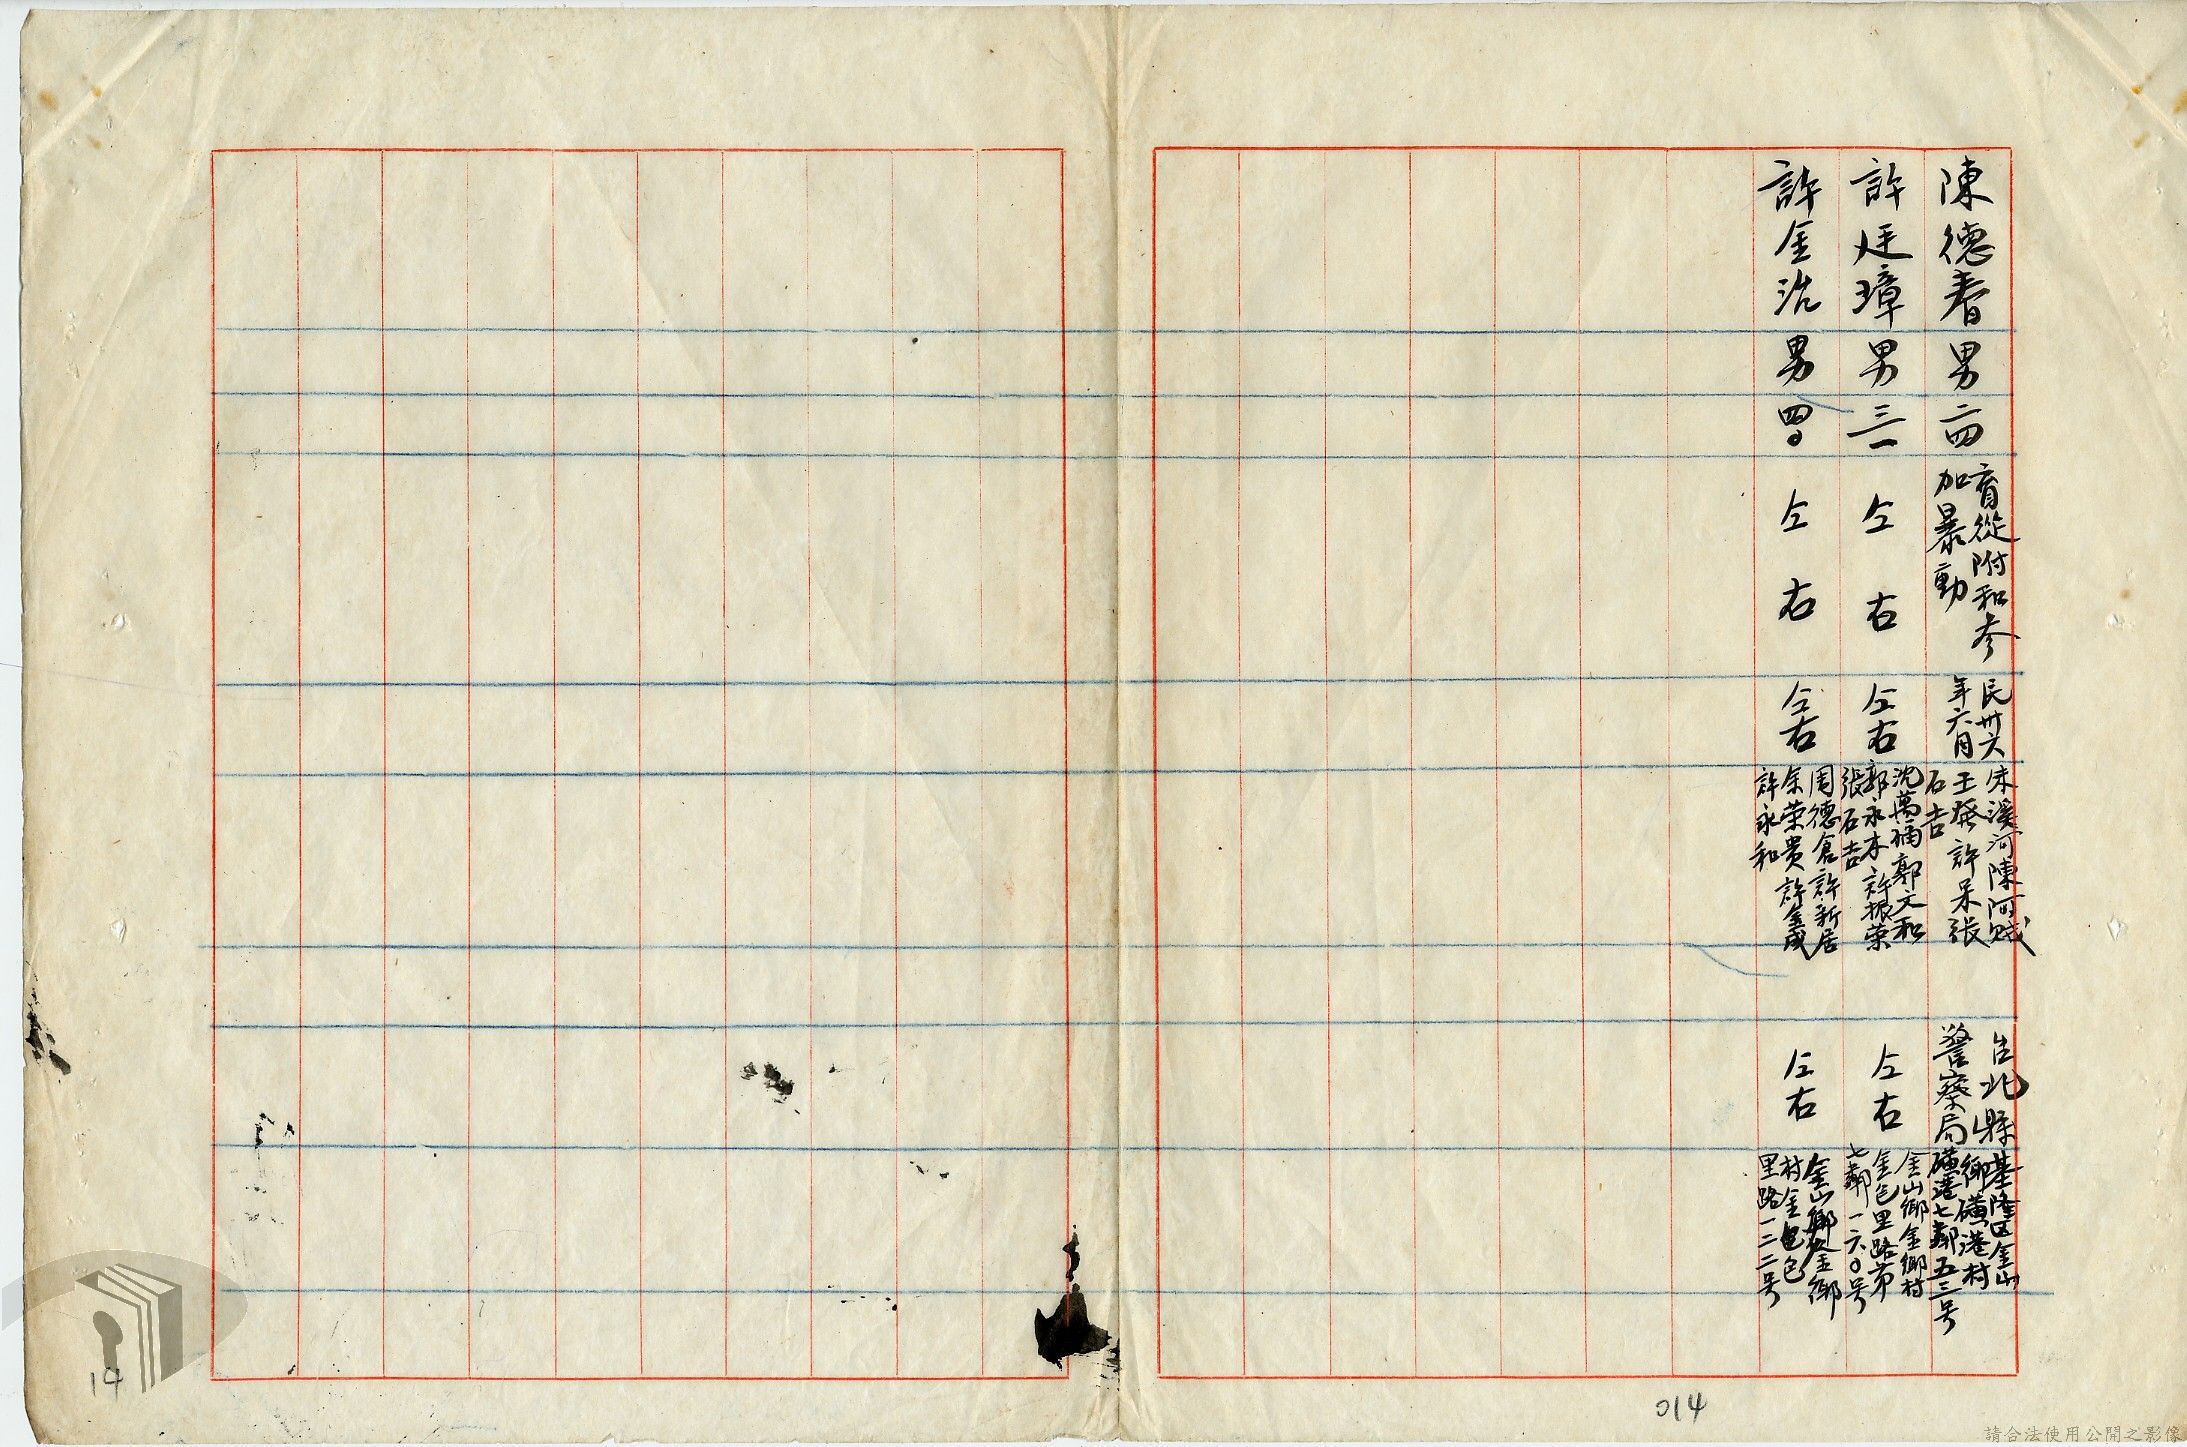 陳德春 男 二四 盲從附和參加暴動 民卅六年六月 朱溪河 陳阿賊 王發 許呆 張石吉 台北縣警察局 基隆区金山鄉磺港村磺港七鄰五三号
許廷璋 男 三一 仝右 仝右 沈萬福 郭文和 郭永木 許振榮 張石吉 仝右 金山鄉金鄉村金包里路第七鄰一六〇号
許金治 男 四〇 仝右 仝右 周德倉 許新居 余荣贵 許金成 許永和 仝右 金山鄉金鄉村金包包里路一二二号
014
14
請合法使用公開之影像